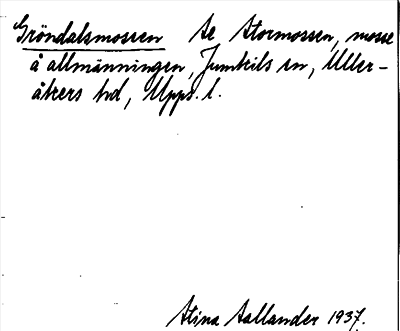 Gröndalsmossen se Stormossen, mosse
å allmänningen, Jumkils sn, Uller-
åkers hd, Upps. l.
Stina Sallander 1937.